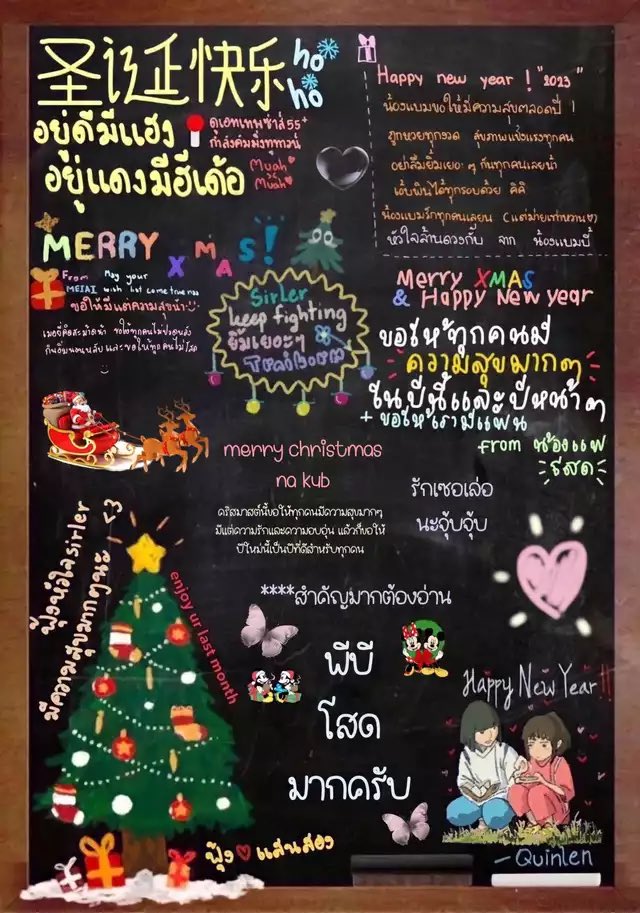 圣诞快乐
ho
ho
อยู่ดีมีแฮง
อยู่แดงมีฮีเด้อ
กำลังคัมมิ่งทูทาวน์
Muah
Muah
Happy new year ! "2023"
น้องแบมขอให้มีความสุขตลอดปี !
ถูกหวยทุกงวด สุขภาพแข็งแรงทุกคน
อย่าลืมยิ้มเยอะ ๆ กันทุกคนเลยน้า
เอ็บพินได้ทุกรอบด้วย คิคิ
น้องแบมรักทุกคนเลยนะ
หัวใจล้านดวงกับ จาก น้องแบมบี้
MERRY
XMAS!
From
MEIAI
May your
wish list come true naa
ขอให้มีแต่ความสุขน้า
Sirler
keep fighting
ยิ้มเยอะๆ
Merry XMAS
& Happy New year
ขอให้ทุกคนมี
ความสุขมากๆ
ในปีนี้และปีหน้าๆ
+ ขอให้เรามีแฟน
from น้องแพ
โสด
merry christmas
na kub
คริสมาสต์นี้ขอให้ทุกคนมีความสุขมากๆ
มีแต่ความรักและความอบอุ่น แล้วก็ขอให้
ปีใหม่นี้เป็นปีที่ดีสำหรับทุกคน
รักเซอเล่อ
นะจุ้บจุ้บ
ฟุ้งหัวใจ sirler
มีความสุขมากๆนะ <3
enjoy ur last month
****สำคัญมากต้องอ่าน
พีบี
โสด
มากครับ
Happy New Year!!
ฟุ้ง ♡ แสนสอง
-Quinlen